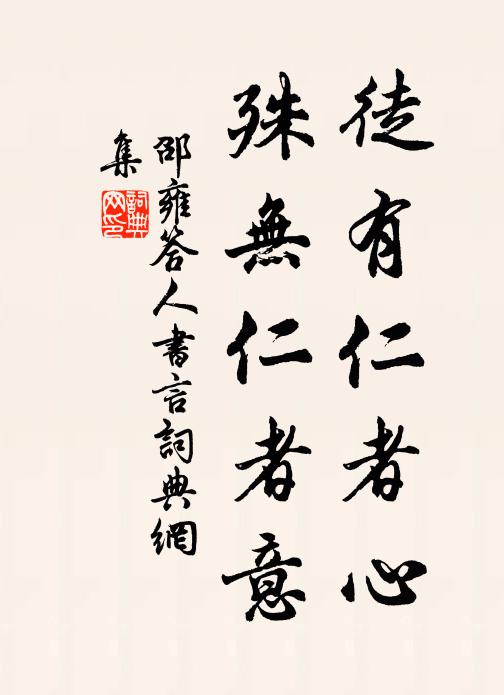 徒有仁者心
殊無仁者意
邵雍答人書言詞典網
集
詞典
网印